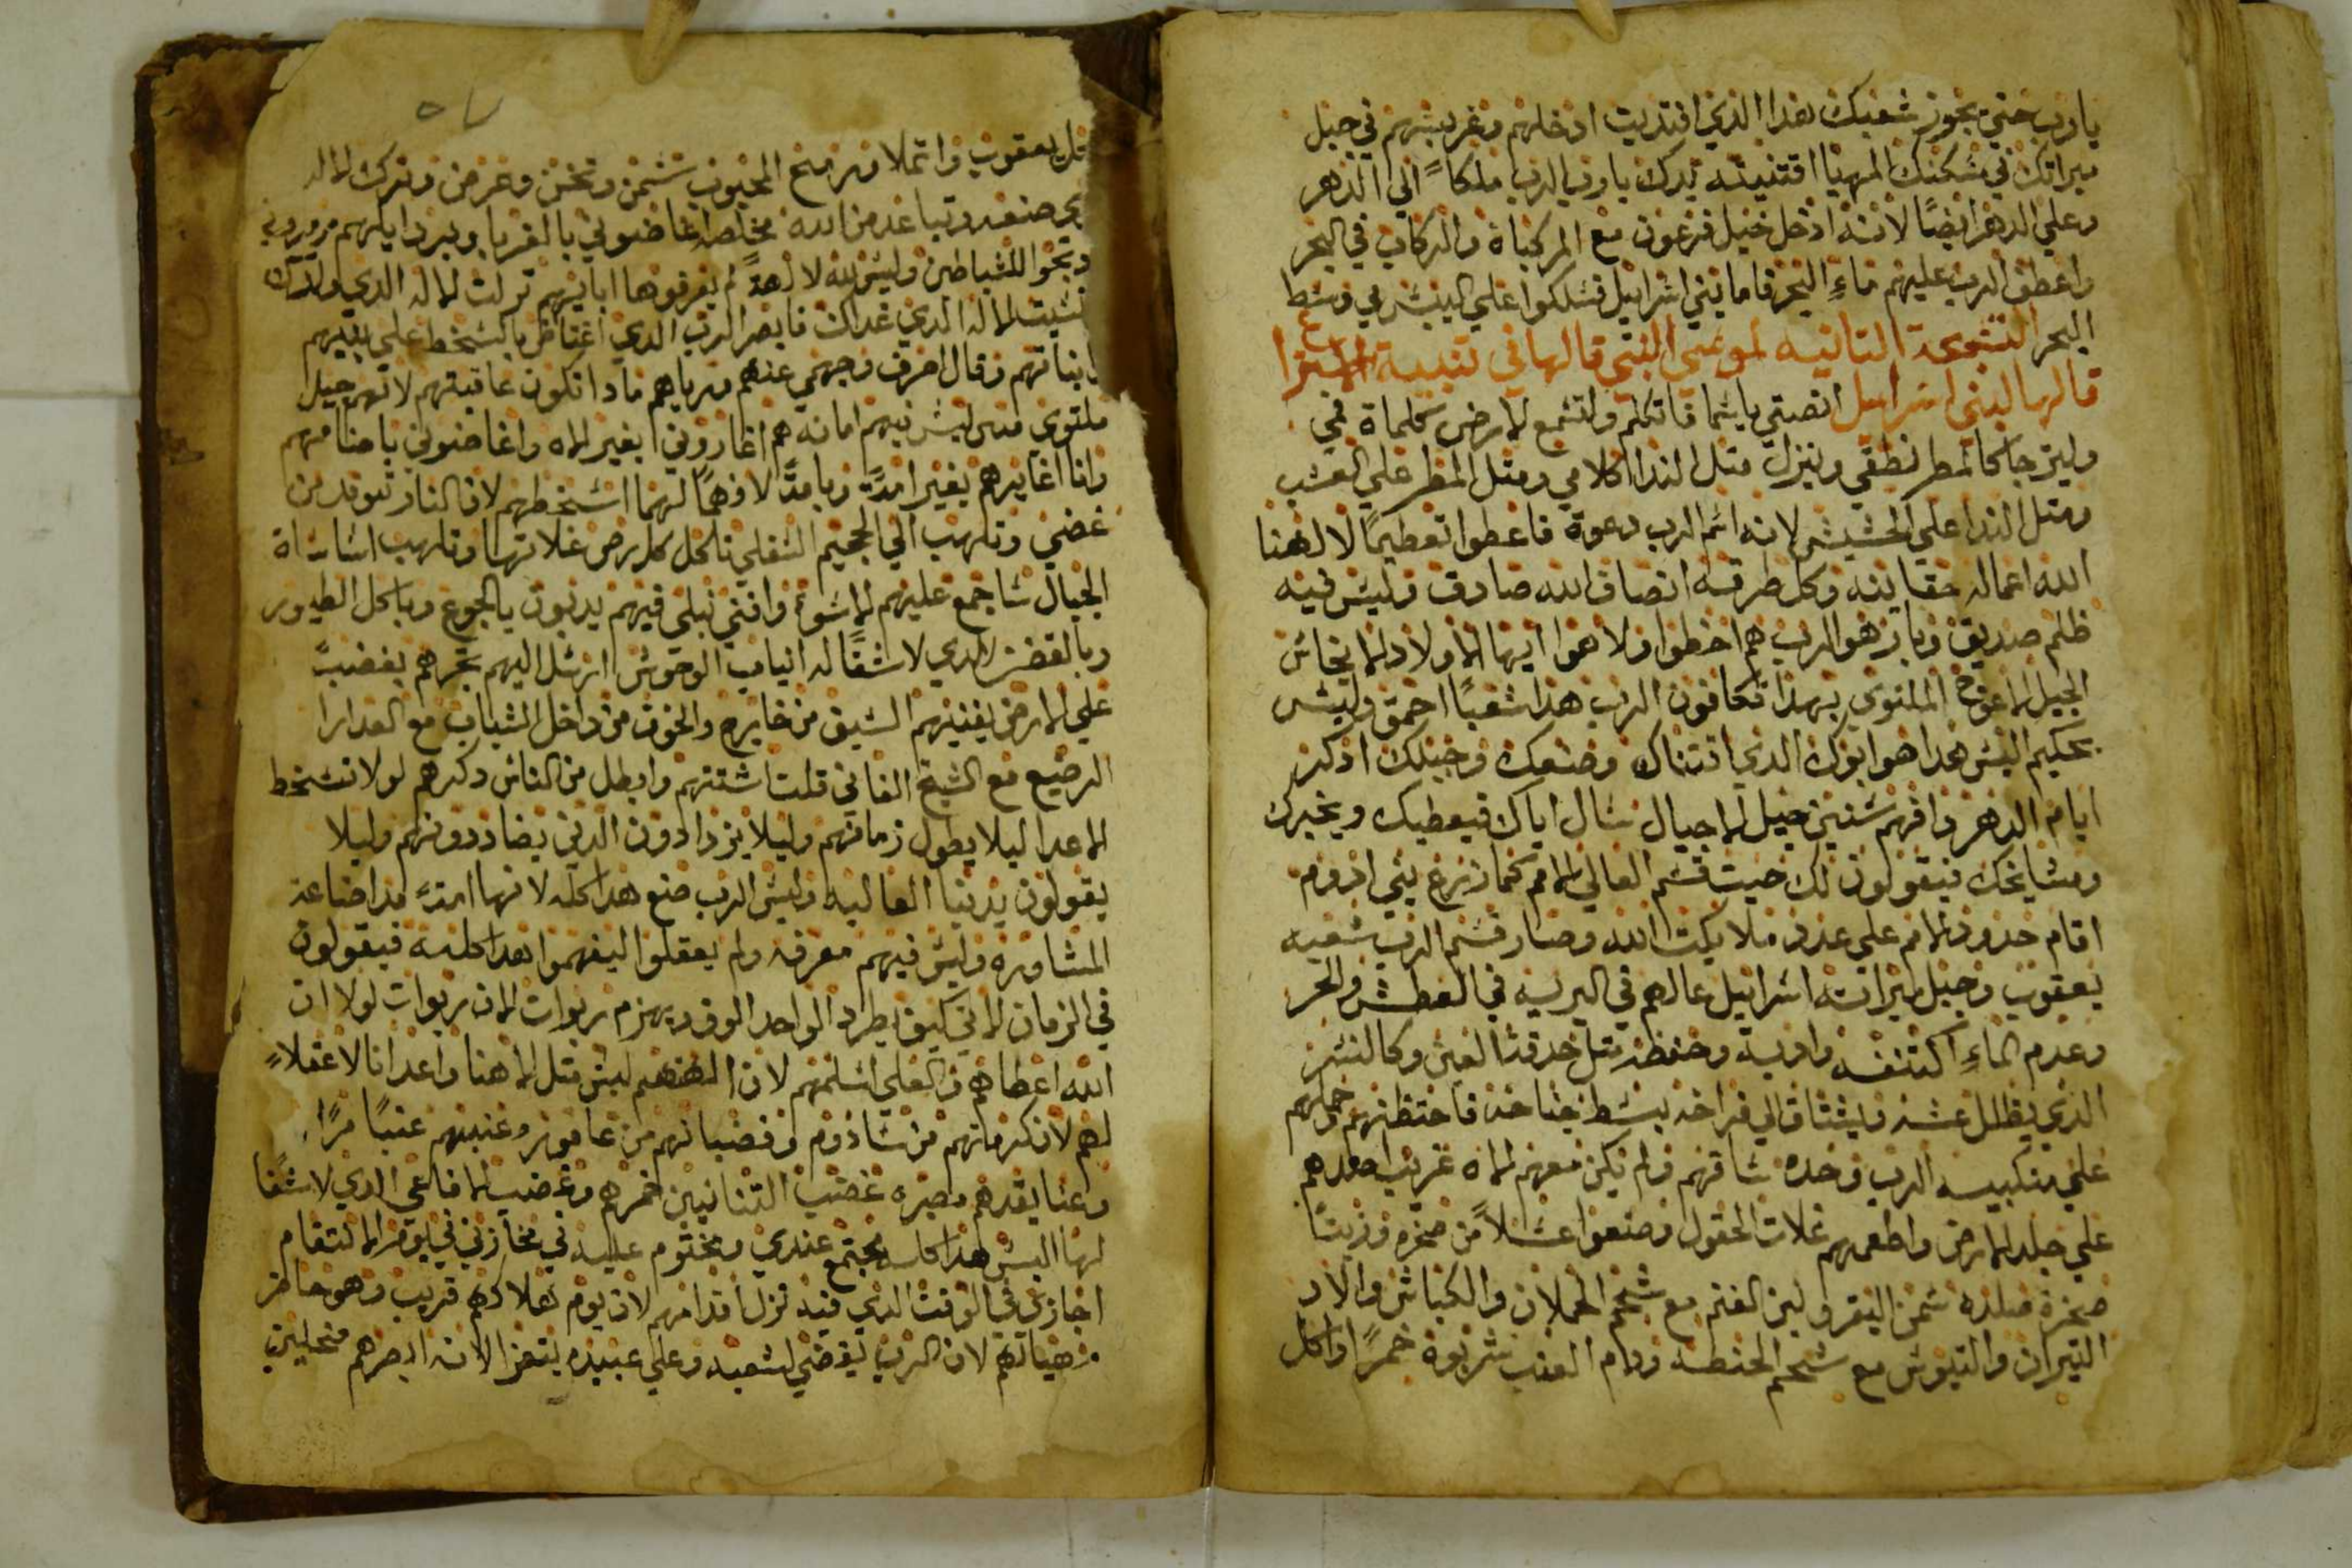 يارب حتي يجوز شعبك هدا الذي اقتديت ادخلهم وغرسهم في جبل
ميراتك في مسكنك المهيا اقتنيته يدك يارب الرب ملكاً الي الدهر
وعلي الدهر ايضًا لانه ادخل خيل فرعون مع المركباة والركاب في البحر
واعطف الرب عليهم ماء البحر فاما بني اسراييل فسلكوا علي اليبس في وسط
البحر التسبحة التانيه لموسي التي قالها في تتنية الاستترا
قالها لبني اسراييل انصتي يا سما فاتكلم ولتسمع الارض كلماة في
وليترجا كالمطر نطقي وينزل متل الندا كلامي ومتل المطر علي العشب
ومتل الندا علي الحشيش لانه اسم الرب دعوة فاعطوا تعظيمًا لالهنا
الله اعماله حقانيه وكل طرقه انصاف الله صادق وليس فيه
ظلم صديق وبار هو الرب هم اخطوا ولا هوا ايها الاولاد الانجاس
الجيل الاعوج الملتوي بهدا تكافون الرب هدا شعبًا احمق وليس
بحكيم اليس هدا هو ابوك الدي اقتناك وصنعك وجبلك ادكر
ايام الدهر وافهم سنين جيل الاجيال سال اباك فيعطيك ويخبرك
ومشايخك فيقولون لك حيت قسم العالي الامم كما زرع بني ادوم
اقام حدود الامم علي عدد ملايكت الله وصار قسم الرب شعبه
يعقوب وحبل ميراته اسراييل عالهم في البريه في العطش والحر
وعدم الماءِ اكتنفه وادبه وحفظه متل حدقة العين وكالنسر
الذي يظلل عشه ويشتاق الي فراخه بسط جناحه فاحتظنهم حملهم
علي منكبيه الرب وحده ساقهم ولم يكن معهم الاه غريب اصعدهم
علي جلد الارض واطعمهم غلات الحقول وصنعوا عسلاً من صخره وزيتًا
صخرة صلده سمن البقر ولبن الغنم مع شحم الحملان والكباش واولاد
التيران والتيوس مع شحم الحنطه ودم العنب شربوة خمرًا واكل
يعقوب واتملا ورمح المحبوب سمن وتخن وعرض وترك الاله
صنعه وتباعد من الله مخلصه اغاضوني بالغربا وبردايلهم مرروني
دبحوا للشياطين وليس لله لالهةً لم يعرفوها اباييهم تركت الاله الدي ولدك
نسيت الاله الدي غداك فابصر الرب الدي اغتاض بالسخط علي بنيهم
وبناتهم وقال اصرف وجهي عنهم وارياهم مادا تكون عاقبتهم لانهم جيل
ملتوي ليس فيهم امانه هم اغاروني بغير الاه واغاضوني باصنامهم
وانا اغايرهم بغير امة وبامة لا فهمًا لهما اسخطهم لان النار توقد من
غضبي وتلهب الي الجحيم السفلي تاكل كل ارض غلاتها وتلهب اساساة
الجبال ساجمع عليهم الاسوا وافني نبلي فيهم يدبون بالجوع وباكل الطيور
وبالقضز الدي لا شفا له انياب الوحوش ارسل اليهم تجرهم بغضب
علي الارض يفنيهم السيف من خارج والخوف من داخل الشباب مع العدارا
الرضيع مع الشيخ الفاني قلت اشتتهم وابطل من الناس دكرهم لولا تسخط
الاعدا ليلا يطول زمانهم وليلا يزدادون الدين يضاددونهم وليلا
يقولون يدينا العاليه وليس الرب صنع هدا كله لانها امةً قد اضاعة
المشاوره وليس فيهم معرفه ولم يعقلوا ليفهموا هدا كله فيقولون
في الزمان الاتي كيف يطرد الواحد الوف ويهزم ربوات الان ربوات لولا ان
الله اعطاهم والعلي اسلمهم لان الههم ليس متل الاهنا واعدانا لا عقلاءً
لهم لان كرماتهم من سادوم وقضبانهم من عامور وعنبهم عنبًا مرًا
وعناقيدهم مصيره غضب التنانين خمرهم وغضب الافاعي الدي لا شفا
لها اليس هدا كله مجتمع عندي ومختوم عليه في مخازني في يوم الانتقام
اجازي في الوقت الدي فيه تزل اقدامهم لان يوم هلاكهم قريب وهو حاضر
مهياتهم لان الرب يقضي لشعبه وعلي عبيده يتعزا لانه ابصرهم منحلين